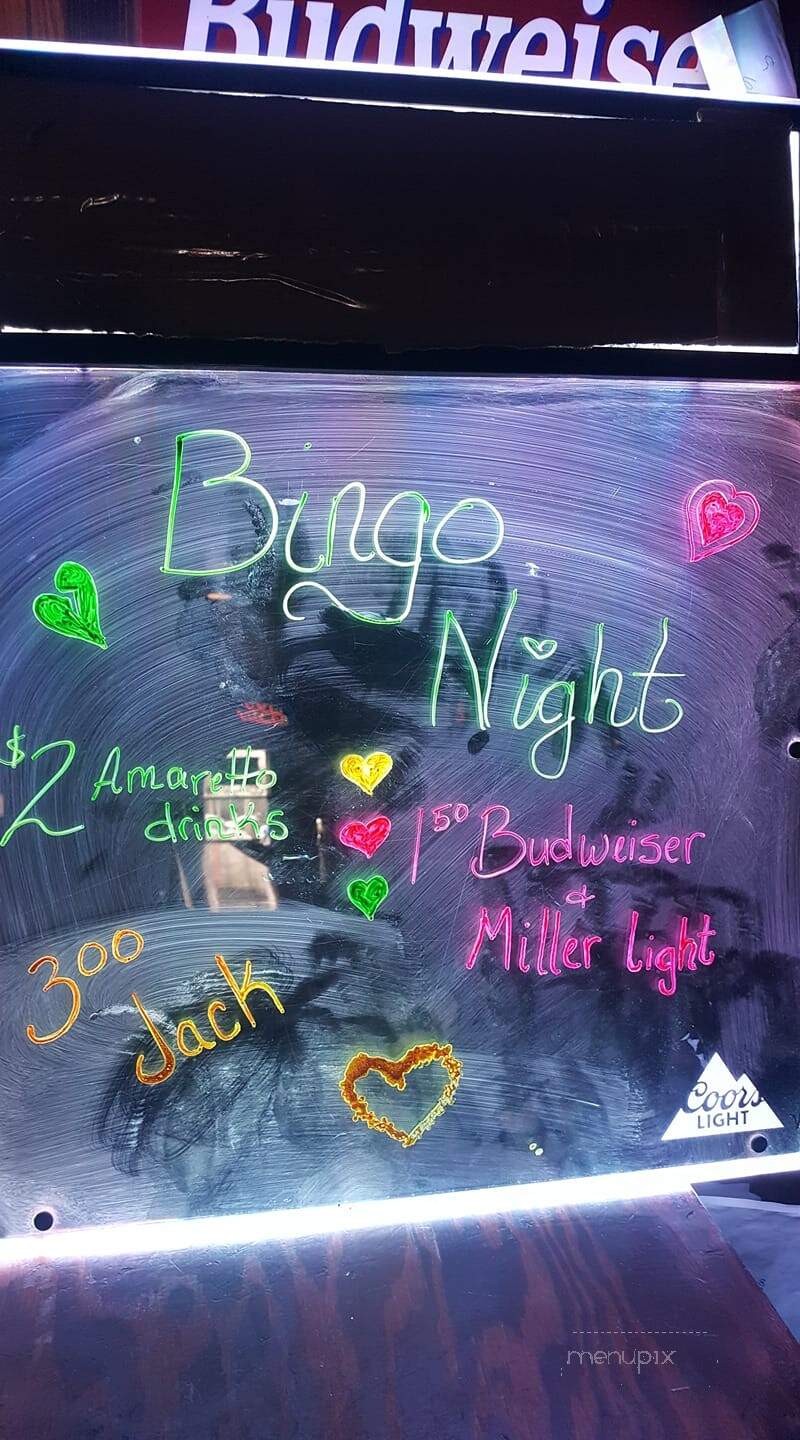 Budweise
Bingo
Night
$2 Amaretto
drinks
1 50 Budweiser
&
Miller light
3 00
Jack
Coors
LIGHT
menupix